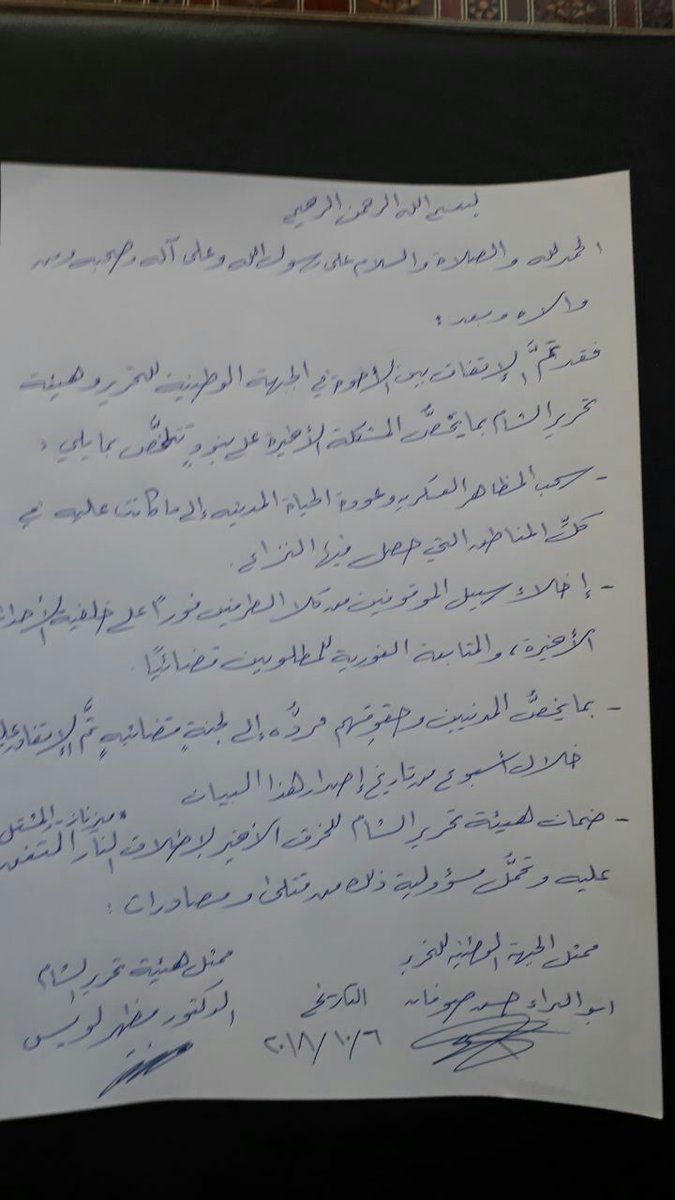 بسم الله الرحمن الرحيم
الحمد لله والصلاة والسلام على رسول الله وعلى آله وصحبه ومن
والاه وبعد:
فقد تمَّ الإتفاق بين الأخوة في الجبهة الوطنية للتحرير وهيئة
تحرير الشام بما يخصُّ المشكلة الأخيرة على بنودٍ تتلخَّصُ بما يلي:
- سحب المظاهر العسكرية وعودة الحياة المدنية إلى ما كانت عليه في
كلِّ المناطق التي حصل فيها النزاع.
- إخلاء سبيل الموقوفين من كلا الطرفين فوراً على خلفية الأحداث
الأخيرة، والمتابعة الفورية للمطلوبين قضائيًّا.
- بما يخصُّ المدنيين وحقوقهم مردُّه إلى لجنةٍ قضائيةٍ تمَّ الإتفاق عليها
خلال أسبوع من تاريخ إصدار هذا البيان
- ضمان هيئة تحرير الشام للخرق الأخير لإطلاق النار المتفق
عليه وتحمُّل مسؤولية ذلك من قتلى ومصادرات:
ممثل الجبهة الوطنية للتحرير
ممثل هيئة تحرير الشام
ابو البراء حسن صوفان
التاريخ
الدكتور مظهر لويس
٢٠١٨/١٠/٦